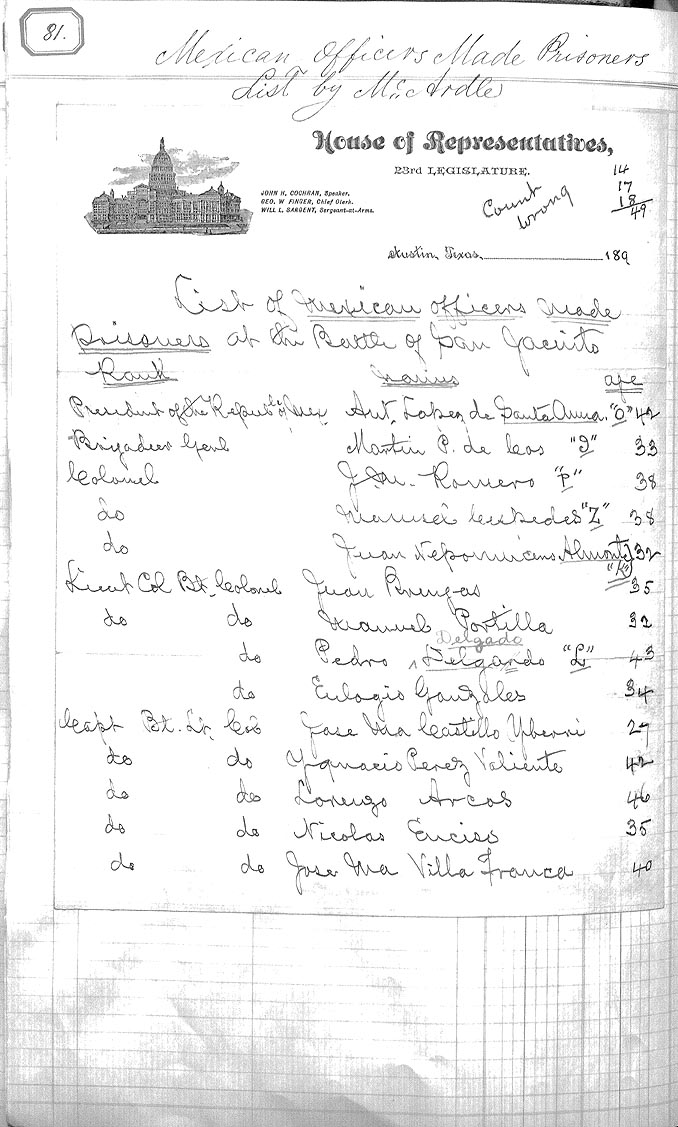 81.
Mexican Officers Made Prisoners
List by McArdle
House of Representatives,
23rd LEGISLATURE.
JOHN H. COCHRAN, Speaker.
GEO. W FINGER, Chief Clerk.
WILL L. SARGENT, Sergeant-at-Arms.
Count wrong
14
17
18
49
Austin, Texas, 189
List of Mexican officers made
prisoners at the Battle of San Jacinto
Rank Names age
President of the Repub of Mex Ant. Lopez de Santa Anna. "O" 42
Brigadier Genl Martin P. de Cos "J" 33
Colonel J. M. Romero "P" 38
do "Z" 38
do Juan Nepomucens Almonte "K" 32
Lieut Col Bt. Colonel Juan 35
do do Manuel Portilla 32
Delgado
do Pedro Delgando "L" 43
do Eulogio Gonzales 34
Capt Bt. Lt. Col Jose Ma Castillo Yberri 27
do do Ygnacio Perez Valiente 42
do do Lorenzo Arcos 46
do do Nicolas Enciso 35
do do Jose Ma Villa Franca 40